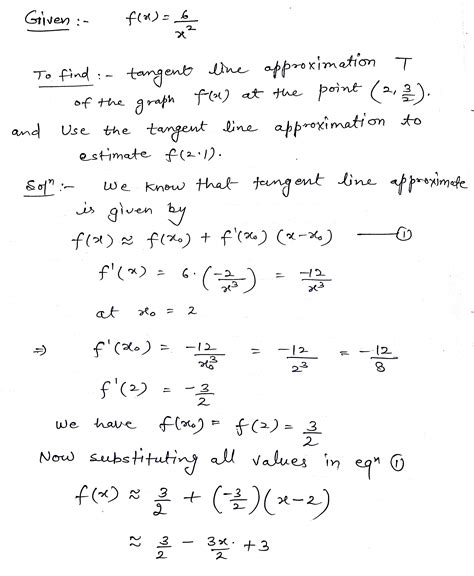 Given :- f(x) = 6/x²
To find :- tangent line approximation T
of the graph f(x) at the point (2, 3/2).
and Use the tangent line approximation to
estimate f(2.1).
Solⁿ :- We know that tangent line approximate
is given by
f(x) ≈ f(x₀) + f'(x₀) (x-x₀) —— ①
f'(x) = 6·(-2/x³) = -12/x³
at x₀ = 2
⇒ f'(x₀) = -12/x₀³ = -12/2³ = -12/8
f'(2) = -3/2
We have f(x₀) = f(2) = 3/2
Now substituting all values in eqⁿ ①
f(x) ≈ 3/2 + (-3/2)(x-2)
≈ 3/2 - 3x/2 + 3